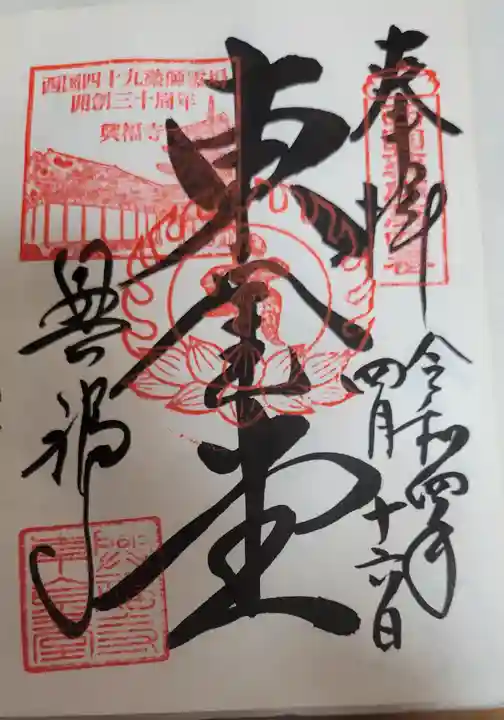 奉拝
令和四年
四月十六日
東金堂
興福寺
西国四十九薬師霊場
開創三十周年
興福寺